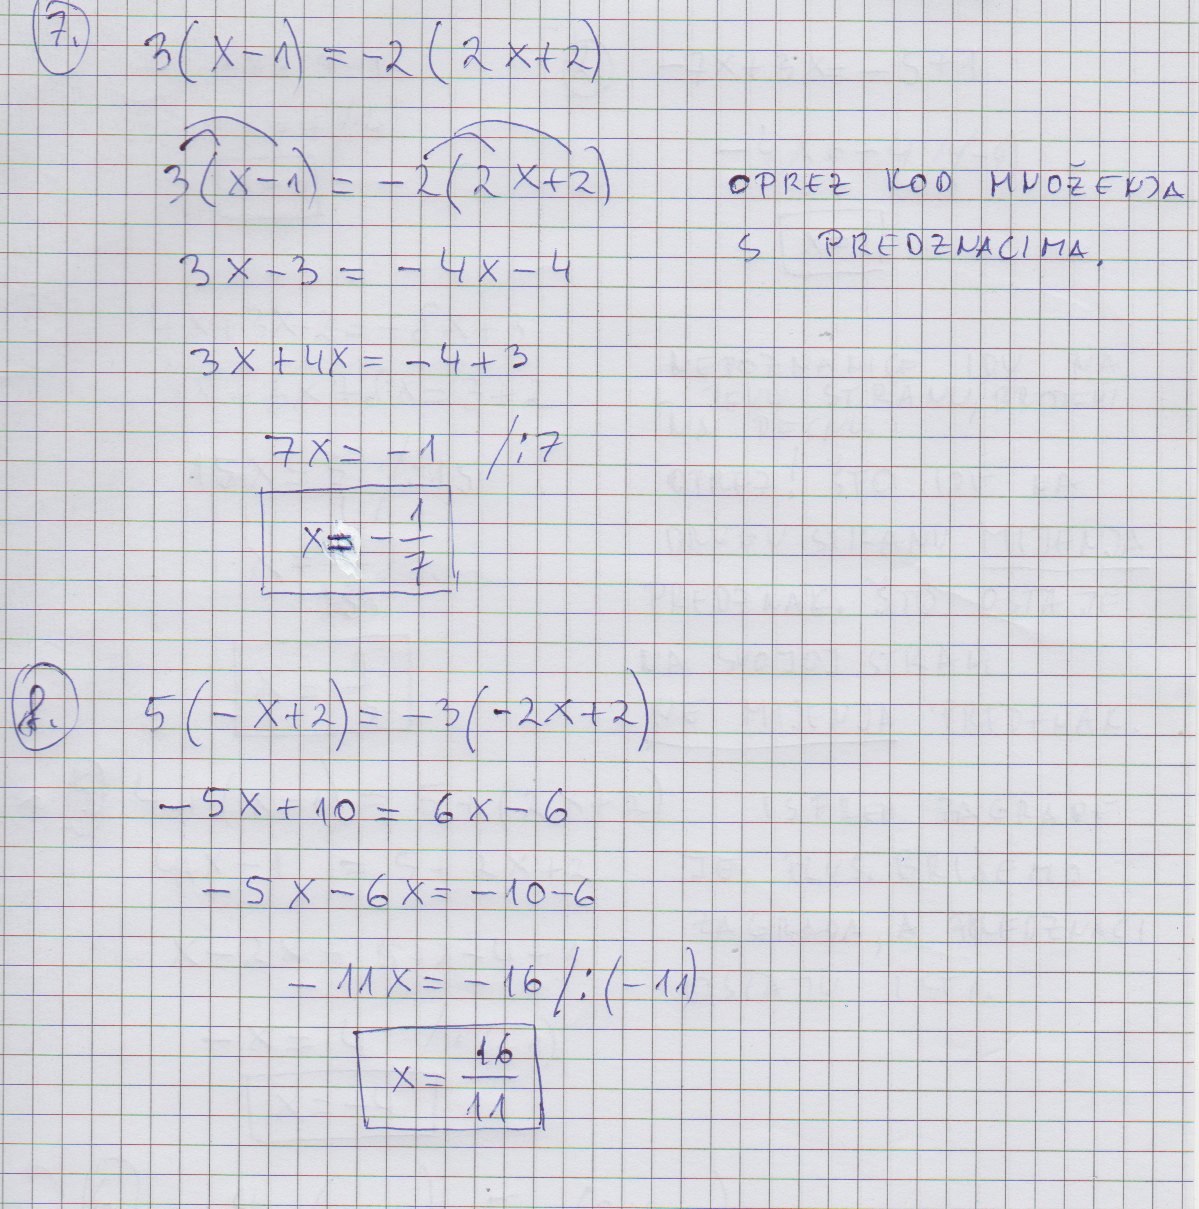 7. 3(x-1) = -2(2x+2)
3(x-1) = -2(2x+2) OPREZ KOD MNOŽENJA
3x-3 = -4x-4 S PREDZNACIMA.
3x+4x = -4+3
7x = -1 /:7
x = -1/7
8. 5(-x+2) = -3(-2x+2)
-5x+10 = 6x-6
-5x-6x = -10-6
-11x = -16 /:(-11)
x = 16/11